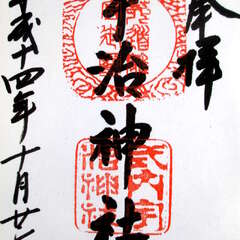 奉拝
宇治神社
平成十四年十月廿
式内宇
治神社